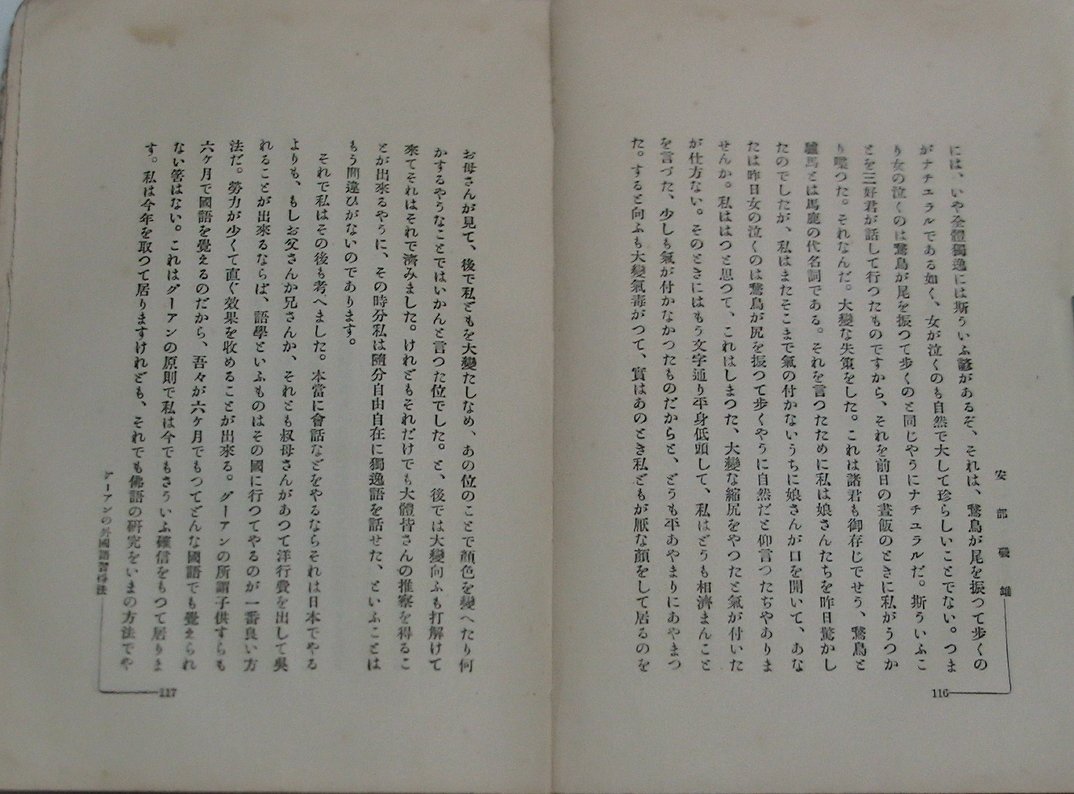 安部磯雄
には、いや全體獨逸には斯ういふ諺があるぞ、それは、鵞鳥が尾を振つて歩くの
がナチュラルである如く、女が泣くのも自然で大して珍らしいことでない。つま
り女の泣くのは鵞鳥が尾を振つて歩くのと同じやうにナチュラルだ。斯ういふこ
とを三好君が話して行つたものですから、それを前日の晝飯のときに私がうつか
り喋つた。それなんだ。大變な失策をした。これは諸君も御存じでせう、鵞鳥と
驢馬とは馬鹿の代名詞である。それを言つたために私は娘さんたちを昨日驚かし
たのでしたが、私はまたそこまで氣の付かないうちに娘さんが口を開いて、あな
たは昨日女の泣くのは鵞鳥が尻を振つて歩くやうに自然だと仰言つたぢやありま
せんか。私ははつと思つて、これはしまつた、大變な縮尻をやつたと氣が付いた
が仕方ない。そのときにはもう文字通り平身低頭して、私はどうも相濟まんこと
を言つた、少しも氣が付かなかつたものだからと、どうも平あやまりにあやまつ
た。すると向ふも大變氣毒がつて、實はあのとき私どもが厭な顔をして居るのを
116
お母さんが見て、後で私どもを大變たしなめ、あの位のことで顔色を變へたり何
かするやうなことではいかんと言つた位でした。と、後では大變向ふも打解けて
來てそれはそれで濟みました。けれどもそれだけでも大體皆さんの推察を得るこ
とが出來るやうに、その時分私は隨分自由自在に獨逸語を話せた、といふことは
もう間違ひがないのであります。
それで私はその後も考へました。本當に會話などをやるならそれは日本でやる
よりも、もしお父さんか兄さんか、それとも叔母さんがあつて洋行費を出して吳
れることが出來るならば、語學といふものはその國に行つてやるのが一番良い方
法だ。勞力が少くて直ぐ效果を收めることが出來る。グーアンの所謂子供すらも
六ヶ月で國語を覺えるのだから、吾々が六ヶ月でもつてどんな國語でも覺えられ
ない筈はない。これはグーアンの原則で私は今でもさういふ確信をもつて居りま
す。私は今年を取つて居りますけれども、それでも佛語の研究をいまの方法でや
グーアンの外國語習得法
117